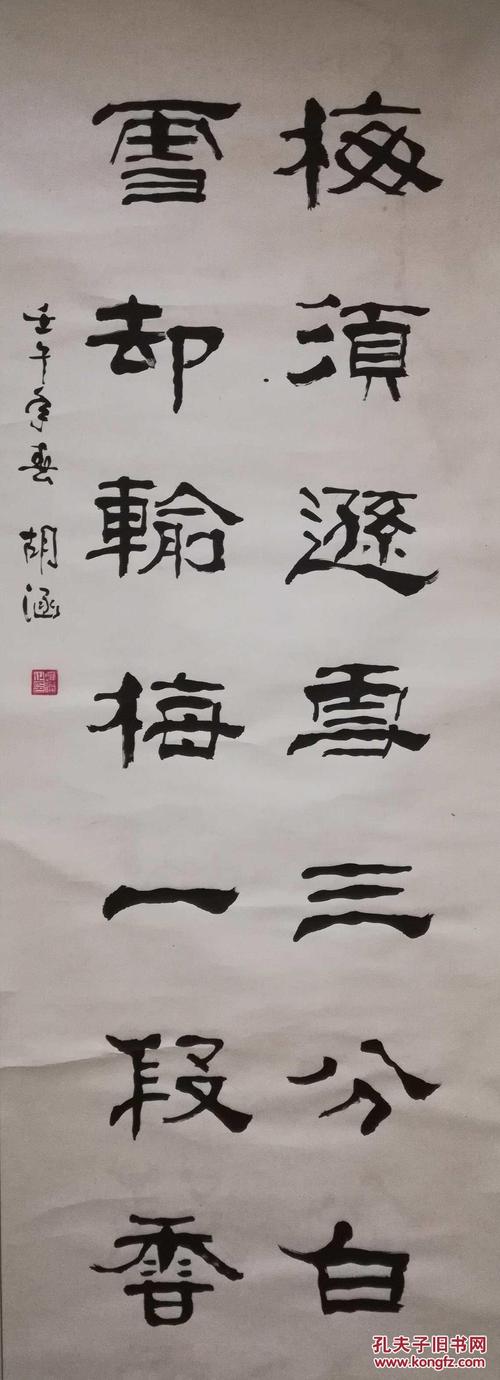 梅須遜雪三分白
雪却輸梅一段香
壬午年春 胡涵
孔夫子旧书网
www.kongfz.com